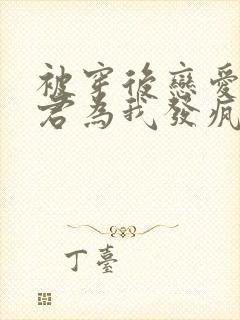 被穿後戀愛
君為我發瘋
丁臺